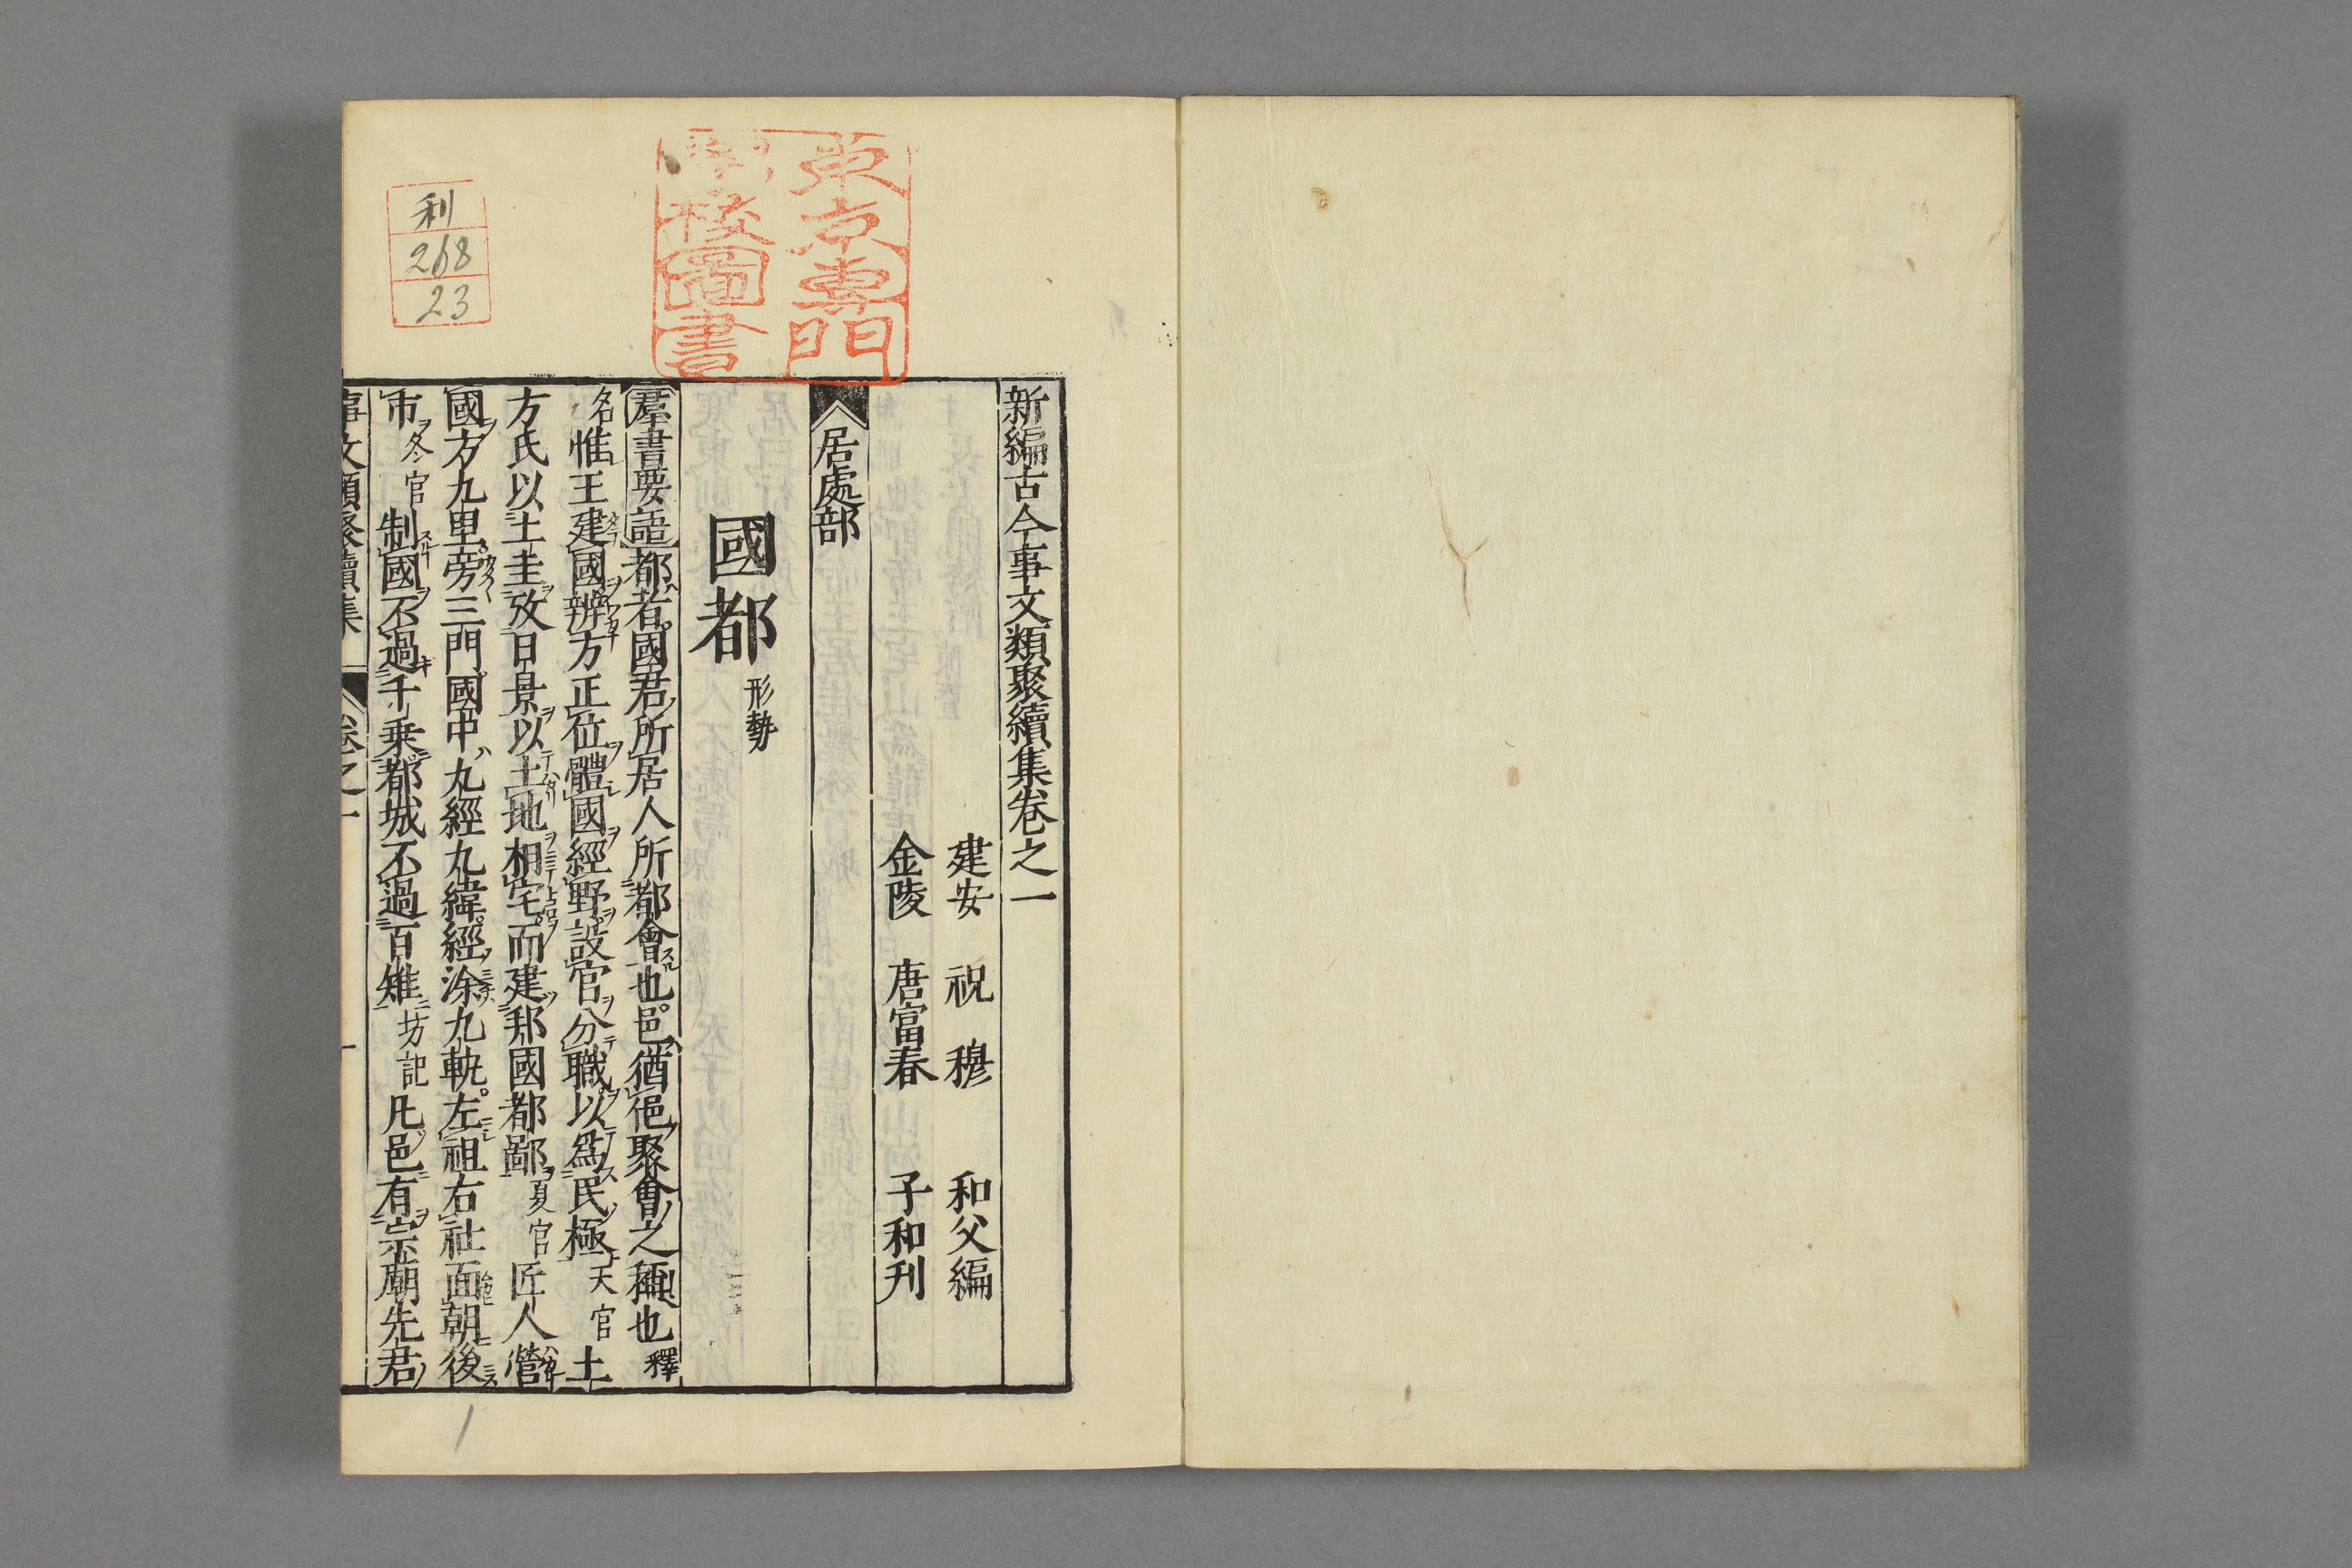 新編古今事文類聚續集卷之一
建安 祝穆 和父編
金陵 唐富春 子和刊
居處部
國都 形勢
羣書要語 都者國君所居人所都會也邑猶俋聚會之稱也 釋
名 惟王建國辨方正位體國經野設官分職以爲民極 天官 土
方氏以土圭攷日景以土地相宅而建邦國都鄙 夏官 匠人營
國方九里旁三門國中九經九緯經涂九軌左祖右社面朝後
市 冬官 制國不過千乗都城不過百雉 坊記 凡邑有宗廟先君
事文類聚續集 卷之一 一
東京專門
學校圖書
利
268
23
1